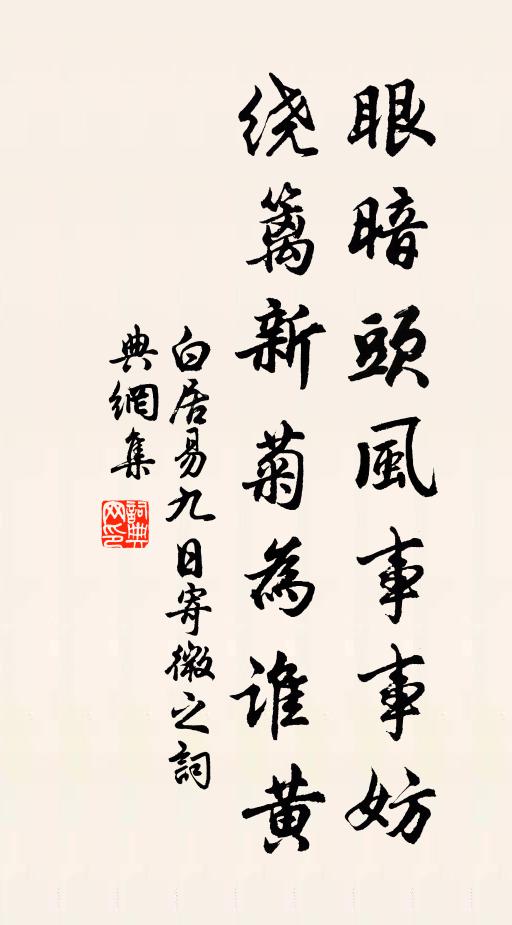 眼暗頭風事事妨
绕篱新菊為谁黄
白居易九日寄微之詞
典網集
詞典网印